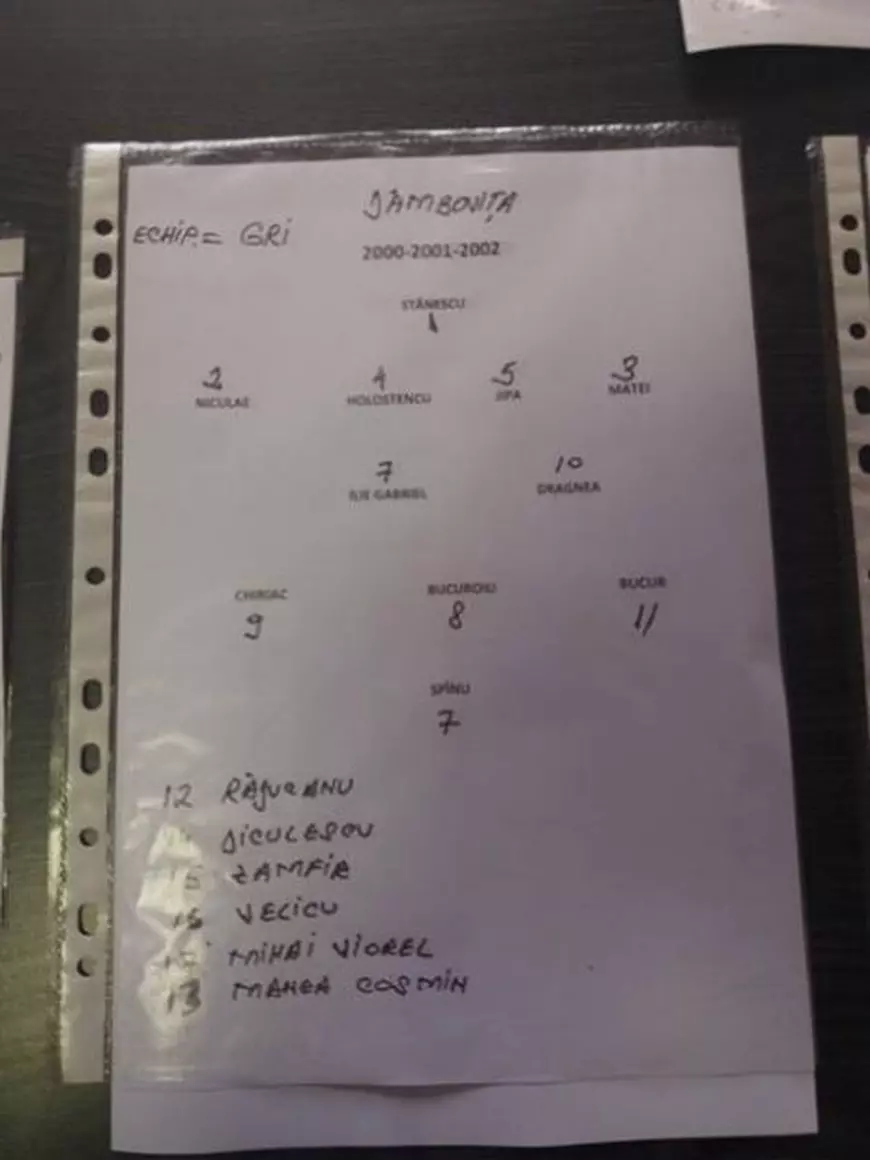 DÂMBOVIȚA
ECHIP.= GRI
2000-2001-2002
STĂNESCU
1
2 4 5 3
NICULAE HOLOSTENCU JIPA MATEI
7 10
ILIE GABRIEL DRAGNEA
CHIRIAC BUCUROIU BUCUR
9 8 11
SPÎNU
7
12
14 DICULESCU
15 ZAMFIR
16 VELICU
17 MIHAI VIOREL
13 MANEA COSMIN